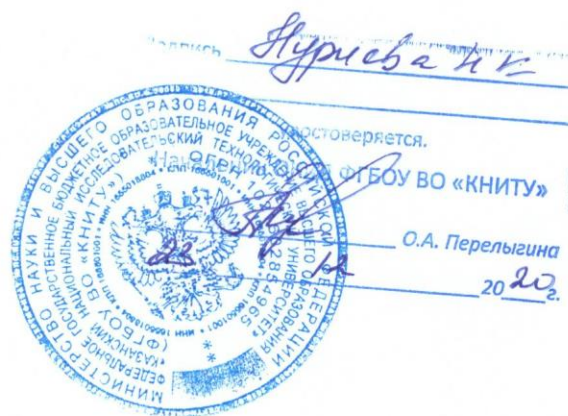 Подпись Нуриева Н К
удостоверяется.
Начальник ФГБОУ ВО «КНИТУ»
О.А. Перелыгина
23 12 2020 г.
МИНИСТЕРСТВО НАУКИ И ВЫСШЕГО ОБРАЗОВАНИЯ РОССИЙСКОЙ ФЕДЕРАЦИИ
ФЕДЕРАЛЬНОЕ ГОСУДАРСТВЕННОЕ БЮДЖЕТНОЕ ОБРАЗОВАТЕЛЬНОЕ УЧРЕЖДЕНИЕ ВЫСШЕГО ОБРАЗОВАНИЯ
«КАЗАНСКИЙ НАЦИОНАЛЬНЫЙ ИССЛЕДОВАТЕЛЬСКИЙ ТЕХНОЛОГИЧЕСКИЙ УНИВЕРСИТЕТ»
(ФГБОУ ВО «КНИТУ»)